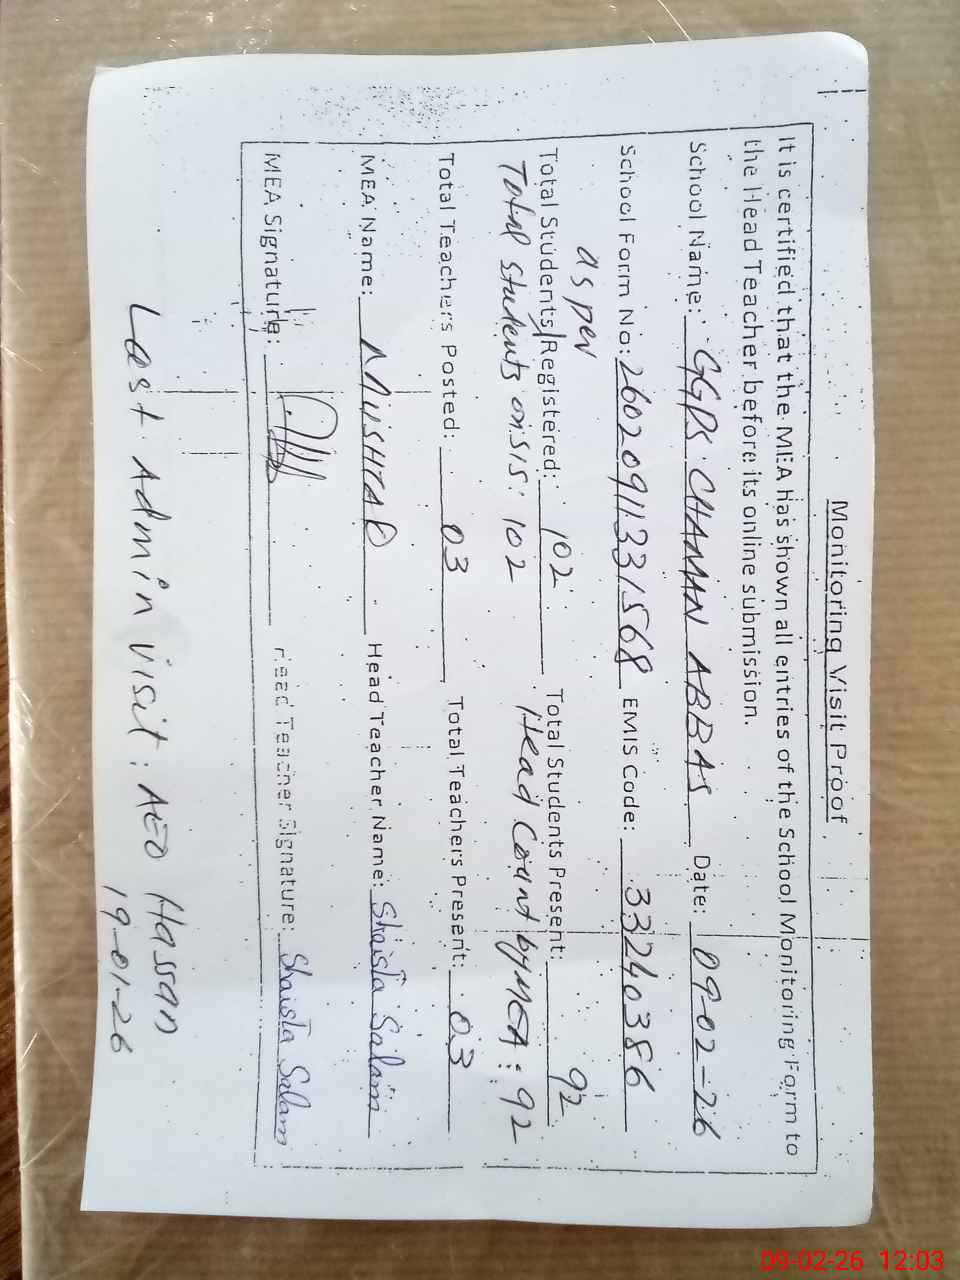 Monitoring Visit Proof
It is certified that the MEA has shown all entries of the School Monitoring Form to
the Head Teacher before its online submission.
School Name: GGPS CHAMAN ABBAS Date: 09-02-26
School Form No: 26020911331568 EMIS Code: 33240386
as per
Total Students Registered: 102 Total Students Present: 92
Total students on SIS: 102 Head Count by MEA: 92
Total Teachers Posted: 03 Total Teachers Present: 03
MEA Name: MUSHTAQ Head Teacher Name: Shaista Salam
MEA Signature: Head Teacher Signature: Shaista Salam
Last Admin visit: AEO Hassan
19-01-26
09-02-26 12:03